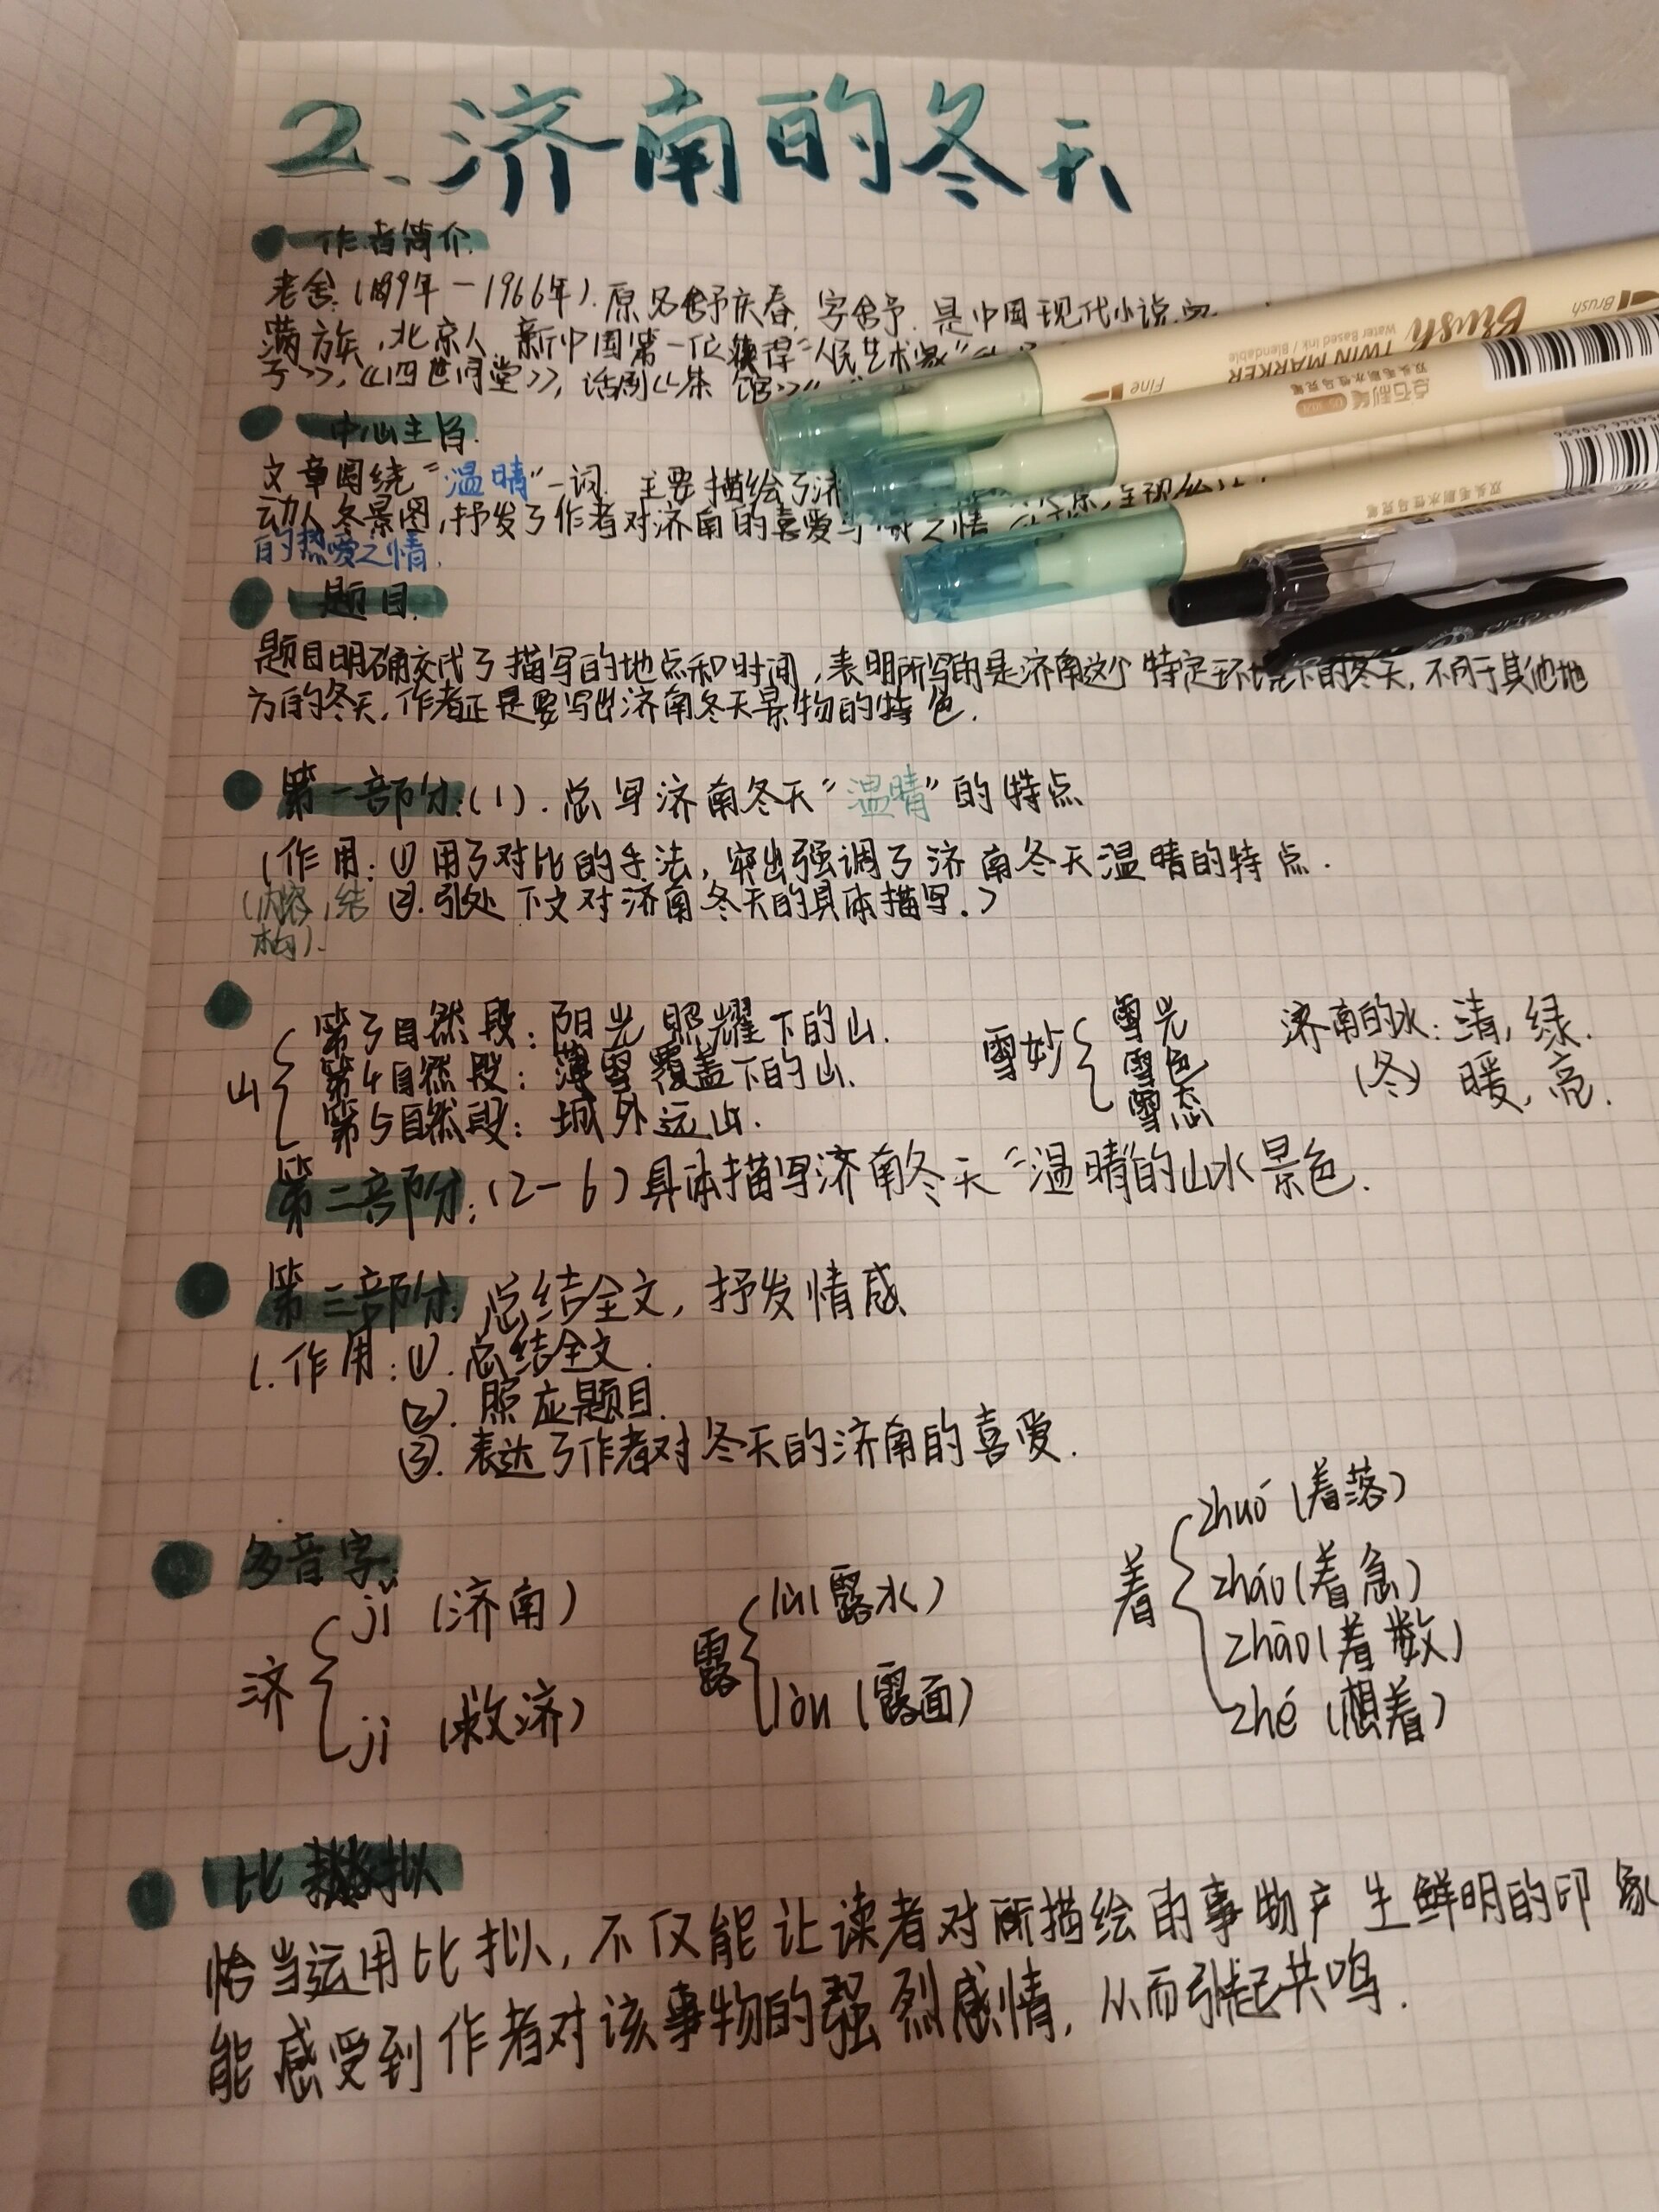 2.济南的冬天
作者简介
老舍.(1899年-1966年).原名舒庆春,字舍予.是中国现代小说
满族,北京人,新中国第一位获得"人民艺术家"
子>>,<<四世同堂>>,话剧<<茶馆>>
中心主旨.
文章围绕"温晴"一词.主要描绘了济
动人冬景图,抒发了作者对济南的喜爱 之情
的热爱之情.
题目.
题目明确交代了描写的地点和时间,表明所写的是济南这个特定环境下的冬天,不同于其他地
方的冬天,作者正是要写出济南冬天景物的特色.
第一部分:(1).总写济南冬天"温晴"的特点
(作用:①用了对比的手法,突出强调了济南冬天温晴的特点.
(内容,结 ②.引处下文对济南冬天的具体描写.)
构).
山
第3自然段:阳光照耀下的山.
第4自然段:薄雪覆盖下的山.
第5自然段:城外远山.
雪妙
雪光
雪色
雪态
济南的水:清,绿.
(冬) 暖,亮.
第二部分:(2-6)具体描写济南冬天"温晴"的山水景色.
第三部分:总结全文,抒发情感
1.作用:①.总结全文.
②.照应题目.
③.表达了作者对冬天的济南的喜爱.
多音字:
济
jǐ (济南)
jì (救济)
露
lù(露水)
lòu (露面)
着
zhuó (着落)
zháo(着急)
zhāo(着数)
zhé (想着)
比拟
恰当运用比拟,不仅能让读者对所描绘的事物产生鲜明的印象
能感受到作者对该事物的强烈感情,从而引起共鸣.
Brush
Fine
Brush
TWIN MARKER
Water Based Ink / Blendable
点石制笔
双头毛刷水性马克笔
双头毛刷水性马克笔